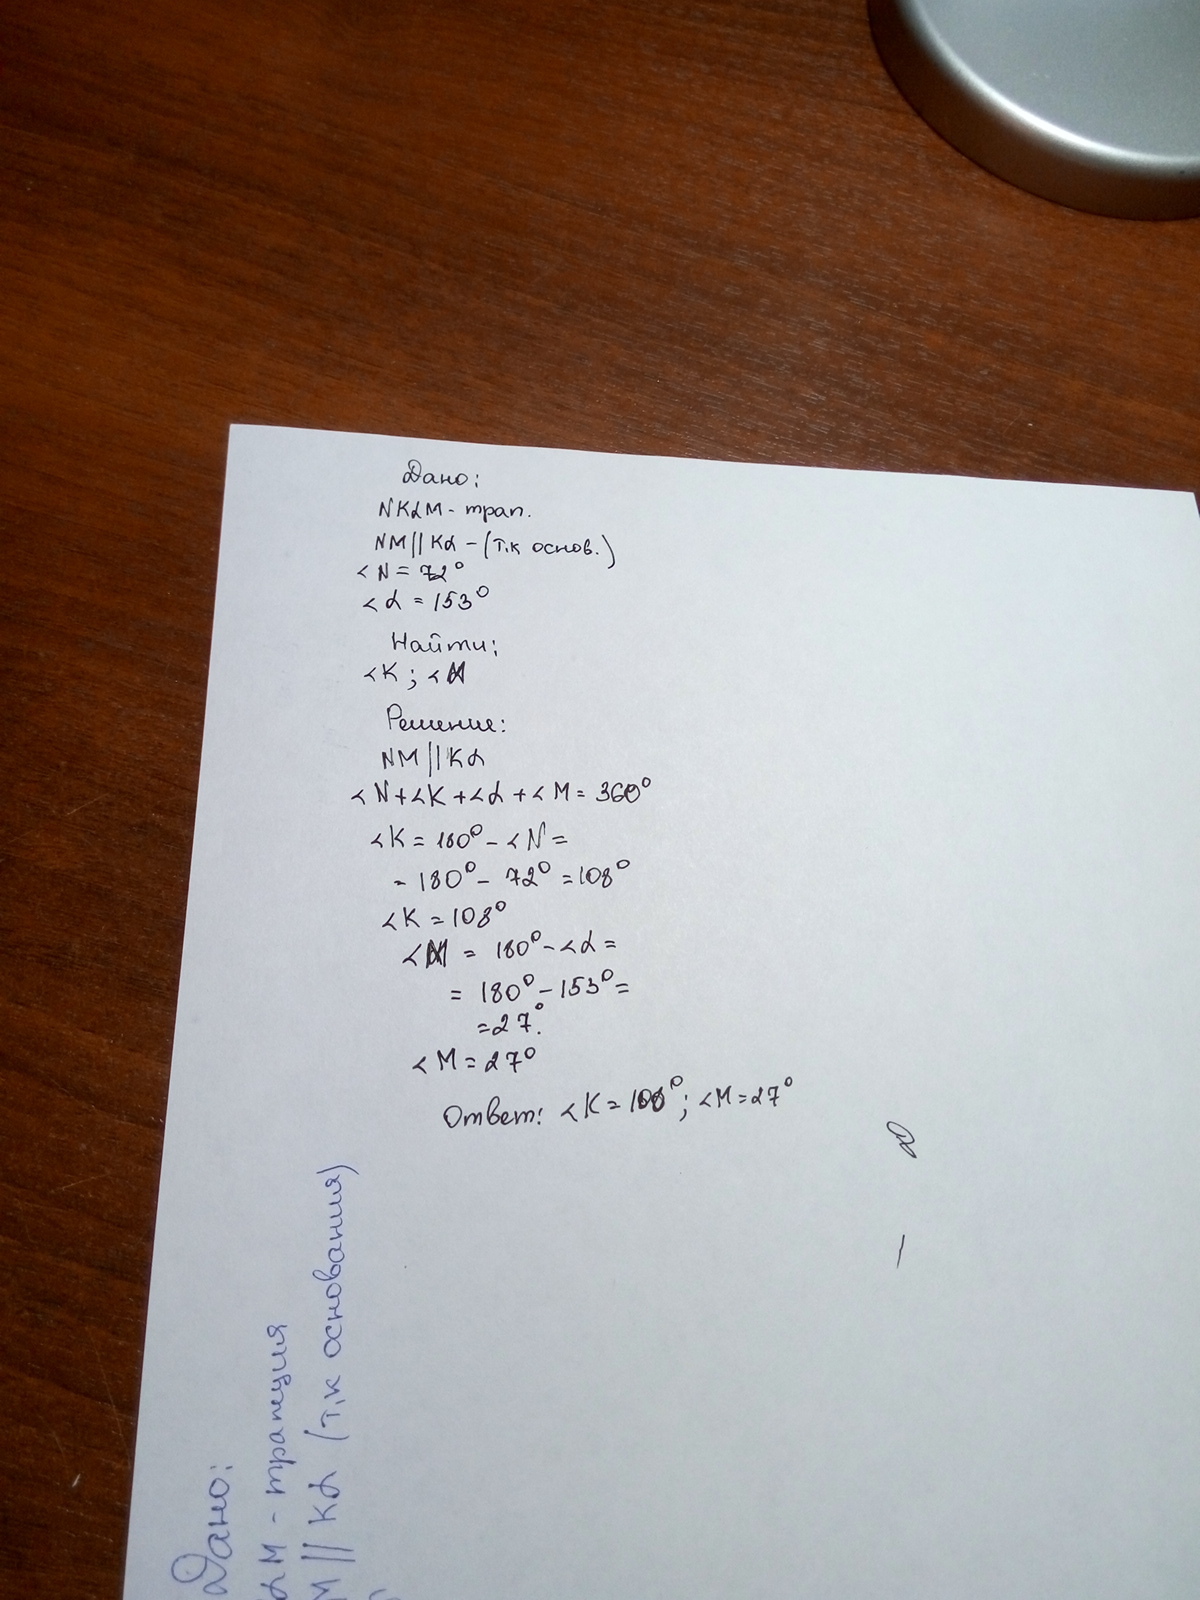 Дано:
NKLM - трап.
NM || KL - (т.к основ.)
∠N = 72°
∠L = 153°
Найти:
∠K ; ∠M
Решение:
NM || KL
∠N + ∠K + ∠L + ∠M = 360°
∠K = 180° - ∠N =
= 180° - 72° = 108°
∠K = 108°
∠M = 180° - ∠L =
= 180° - 153° =
= 27°.
∠M = 27°
Ответ: ∠K = 108° ; ∠M = 27°
Дано:
LM - трапеция
M || KL (т.к основания)